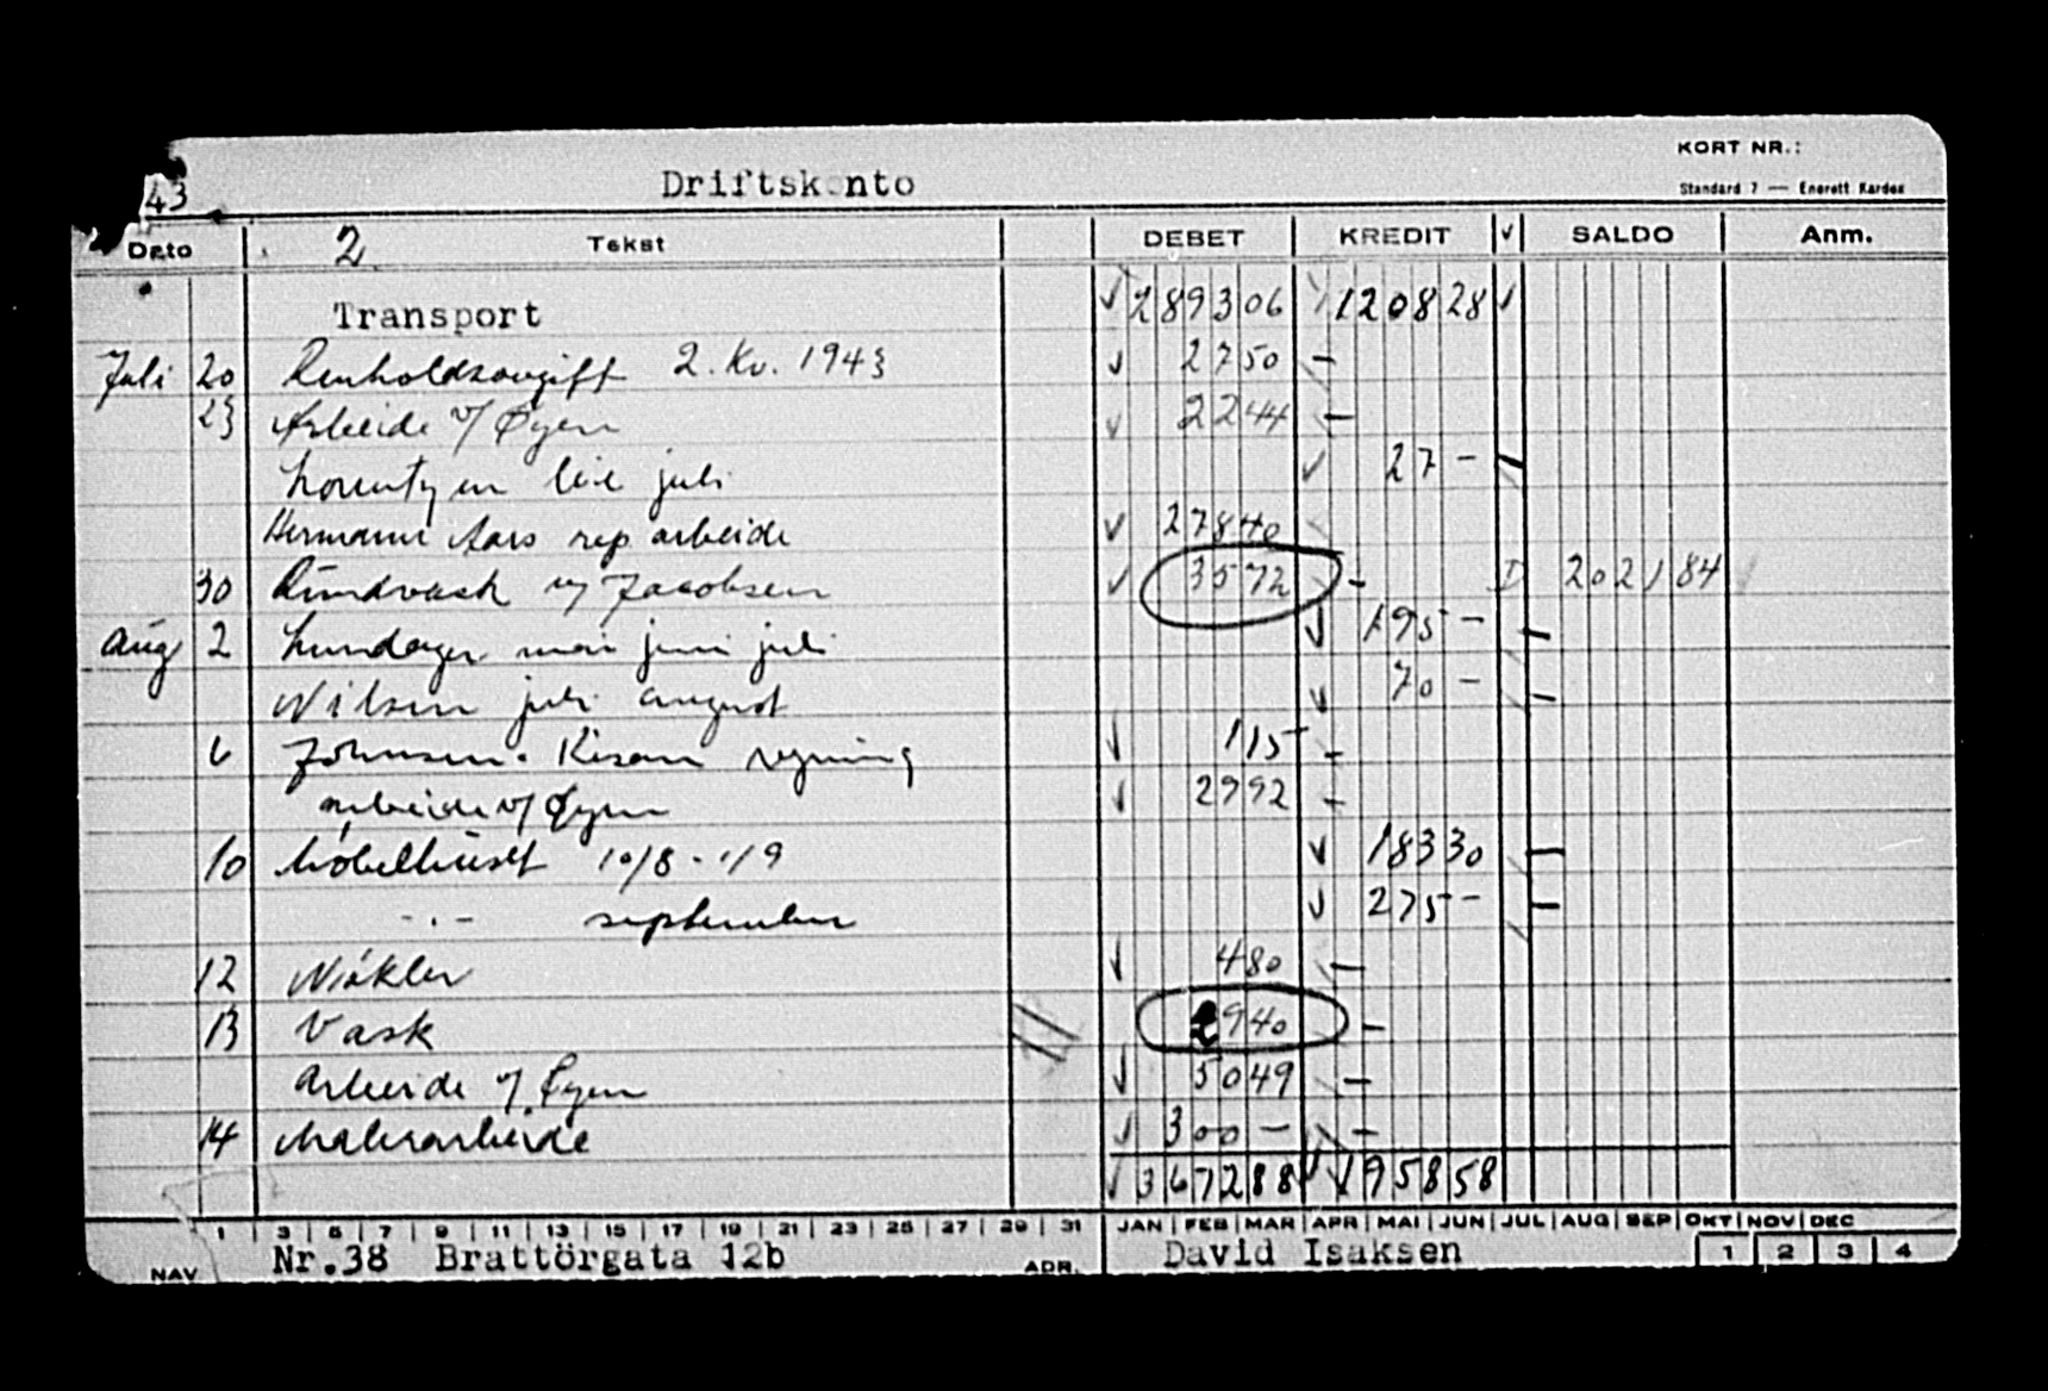 KORT NR.:
Driftskonto
Standard 7 — Enerett Kardex
43
Dato 2 Tekst DEBET KREDIT √ SALDO Anm.
Transport √ 2893 06 1208 28 √
Juli 20 Renholdsavgift 2. Kv. 1943 √ 27 50 –
23 Arbeide v/ Øyen √ 22 44 –
Lorentzen leie juli √ 27 –
Hermann Aars rep arbeide √ 278 40
30 Rundvask v/ Jacobsen √ 35 72 – D 2021 84
Aug 2 Lundager mai juni juli √ 195 –
Nilsen juli august √ 70 –
6 Johnsen. regning √ 115 –
arbeide v/ Øyen √ 29 92 –
10 Møbelhuset 10/8 - 1/9 √ 183 30
- . - september √ 275 –
12 Nøkler √ 4 80 –
13 Vask 9 40 –
Arbeide v/ Øyen √ 50 49 –
14 Malerarbeide √ 300 – –
√ 3672 88 √ √ 1958 58
1 3 5 7 9 11 13 15 17 19 21 23 25 27 29 31 JAN FEB MAR APR MAI JUN JUL AUG SEP OKT NOV DEC
NAVN Nr.38 Brattörgata 12b ADR. David Isaksen 1 2 3 4